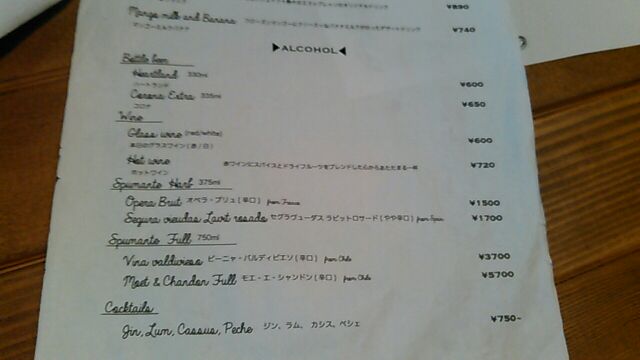 ¥890
Mango milk and Banana フローズンマンゴーにクリーミーなバナナミルクが合わさったデザートドリンク ¥740
マンゴーミルクバナナ
▶ALCOHOL◀
Bottle beer
Heartland 330ml ¥600
ハートランド
Corona Extra 335ml ¥650
コロナ
Wine
Glass wine (red/white) ¥600
本日のグラスワイン(赤/白)
Hot wine 赤ワインにスパイスとドライフルーツをブレンドした心からあたたまる一杯 ¥720
ホットワイン
Spumante Harf 375ml
Opera Brut オペラ・ブリュ(辛口) from France ¥1500
Segura vieudas Lavit rosado セグラヴューダス ラビットロサード(やや辛口) from Spain ¥1700
Spumante Full 750ml
Vina valdivieso ビーニャ・バルディビエソ(辛口) from Chile ¥3700
Moet & Chandon Full モエ・エ・シャンドン(辛口) from Chile ¥5700
Cocktails
Jin, Lum, Cassus, Peche ジン、ラム、カシス、ペシェ ¥750~